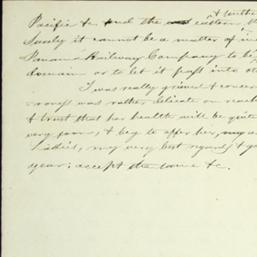 Pacific & the eastern
Surely it cannot be a matter of
Panama Railway Company to be
domain or to let it pass into
I was really grieved &
was rather delicate on
& trust that her health will be quite
very soon, & beg to offer her, my
Ladies, my very best regards &
year: accept the same &c.